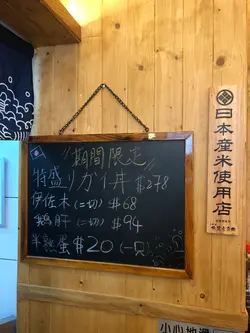 期間限定
特盛リガイ丼 $278
伊佐木(二切) $68
鵝肝(二切) $94
半熟蛋 $20(一只)
日本産米使用店
小心地滑